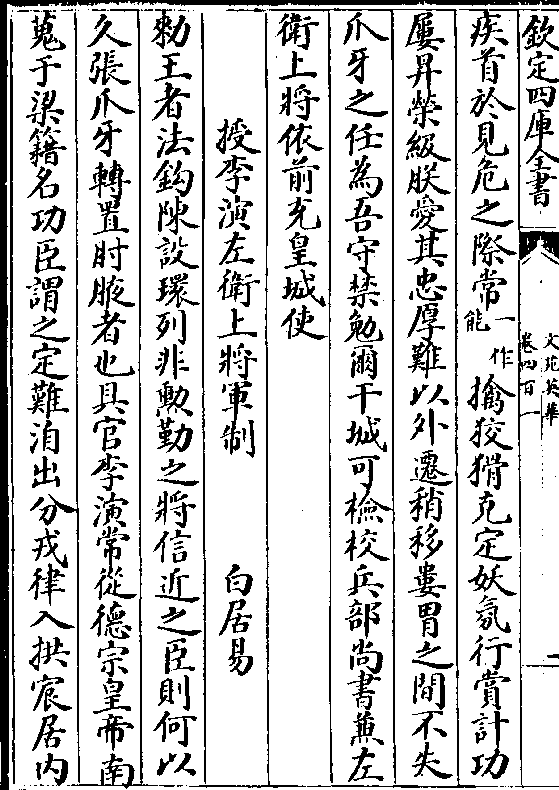 欽定四庫全書
文苑英華
卷四百一
疾首於見危之際常一作能擒狡猾克定妖氛行賞計功
屢昇榮級朕愛其忠厚難以外遷稍移婁胃之間不失
爪牙之任為吾守禁勉爾干城可檢校兵部尚書兼左
衛上將依前充皇城使
授李演左衛上將軍制 白居易
勑王者法鈎陳設環列非勲勤之將信近之臣則何以
久張爪牙轉置肘腋者也具官李演常從德宗皇帝南
蒐于梁籍名功臣謂之定難洎出分戎律入拱宸居内